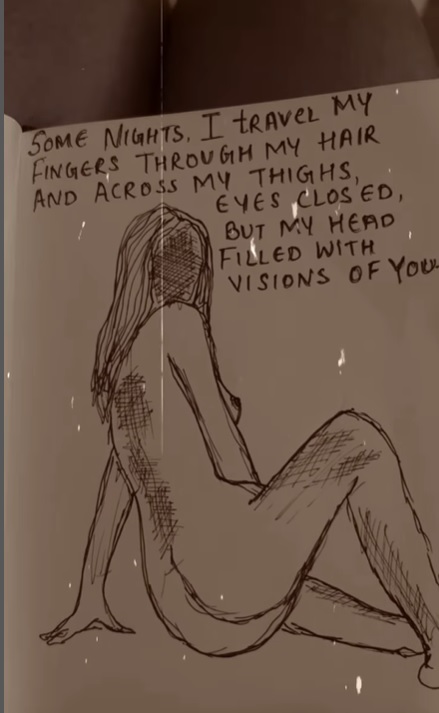 SOME NIGHTS, I tRAVEL MY
FINGERS THROUGH MY HAIR
AND ACROSS MY THIGHS,
EYES CLOSED,
BUT MY HEAD
FILLED WITH
VISIONS OF YOU